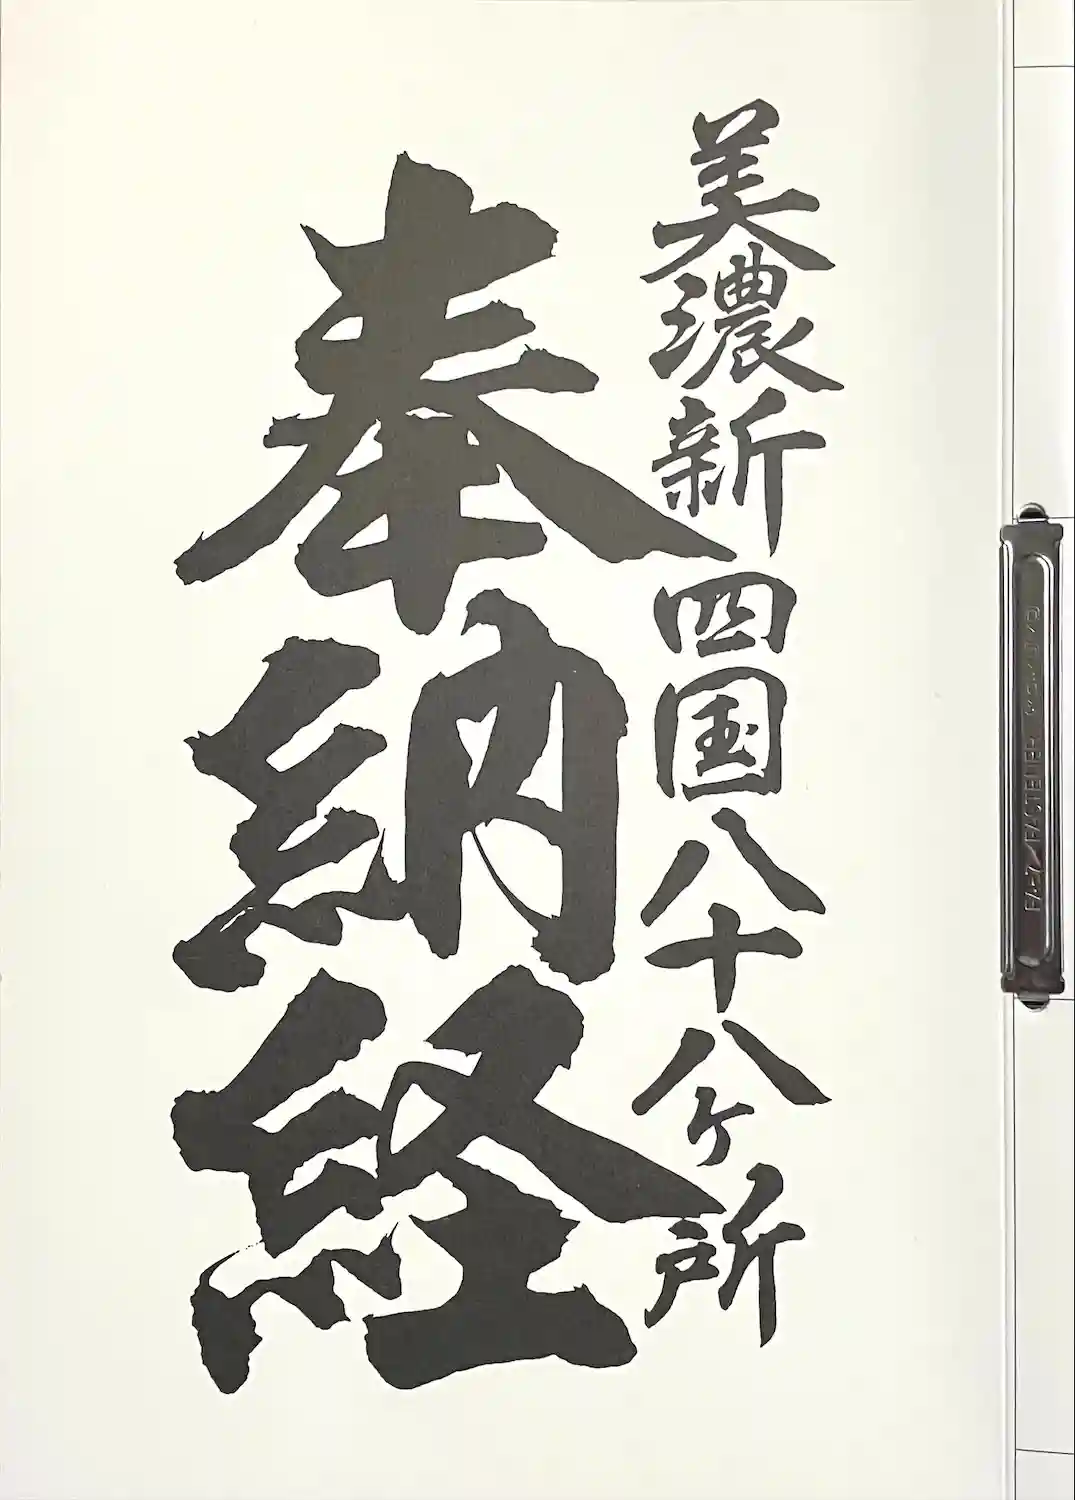 美濃新四国八十八ヶ所
奉納経
FASTENER